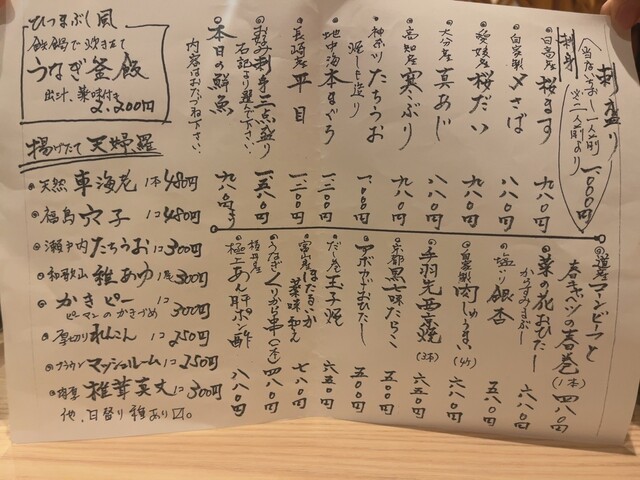 刺盛り
一人前 一、〇〇〇円
※二人前より
刺身
日高産 桜ます 九八〇円
自家製 〆さば 八八〇円
愛媛産 桜だい 九八〇円
大分産 真あじ 八八〇円
高知産 寒ぶり 九八〇円
神奈川 たちうお 一、〇〇〇円
焼しも造り
地中海 本まぐろ 一、三〇〇円
長崎産 平目 一、二〇〇円
お好み刺身三点盛り 一、五八〇円
右記より選べて下さい。
本日の鮮魚 九八〇円より
内容はおたづね下さい。
道産マーンビーフと
春キャベツの春巻(1本) 四八〇円
菜の花おひたし 六八〇円
からすみまぶし
塩いり銀杏 五八〇円
自家製 肉しゅうまい(4ケ) 六八〇円
手羽先西京焼(3本) 六五〇円
京都 黒七味たらこ 五八〇円
アボカドおひたし 五〇〇円
だし巻玉子焼 六五〇円
富山産ほたるいか 七八〇円
薬味和え
うなぎくりから串(一本) 四八〇円
極上あん肝ポン酢 八八〇円
ひつまぶし風
鉄鍋で炊き立て
うなぎ釜飯
出汁、薬味付き
2,200円
揚げたて天婦羅
天然 車海老 1本480円
福島 穴子 1コ480円
瀬戸内たちうお1コ300円
和歌山 稚あゆ 1尾300円
かきピー 1コ300円
ピーマンのかきづめ
厚切りれんこん 1コ250円
ブラウンマッシュルーム1コ250円
椎茸真丈1コ300円
他、日替り種あり〼。